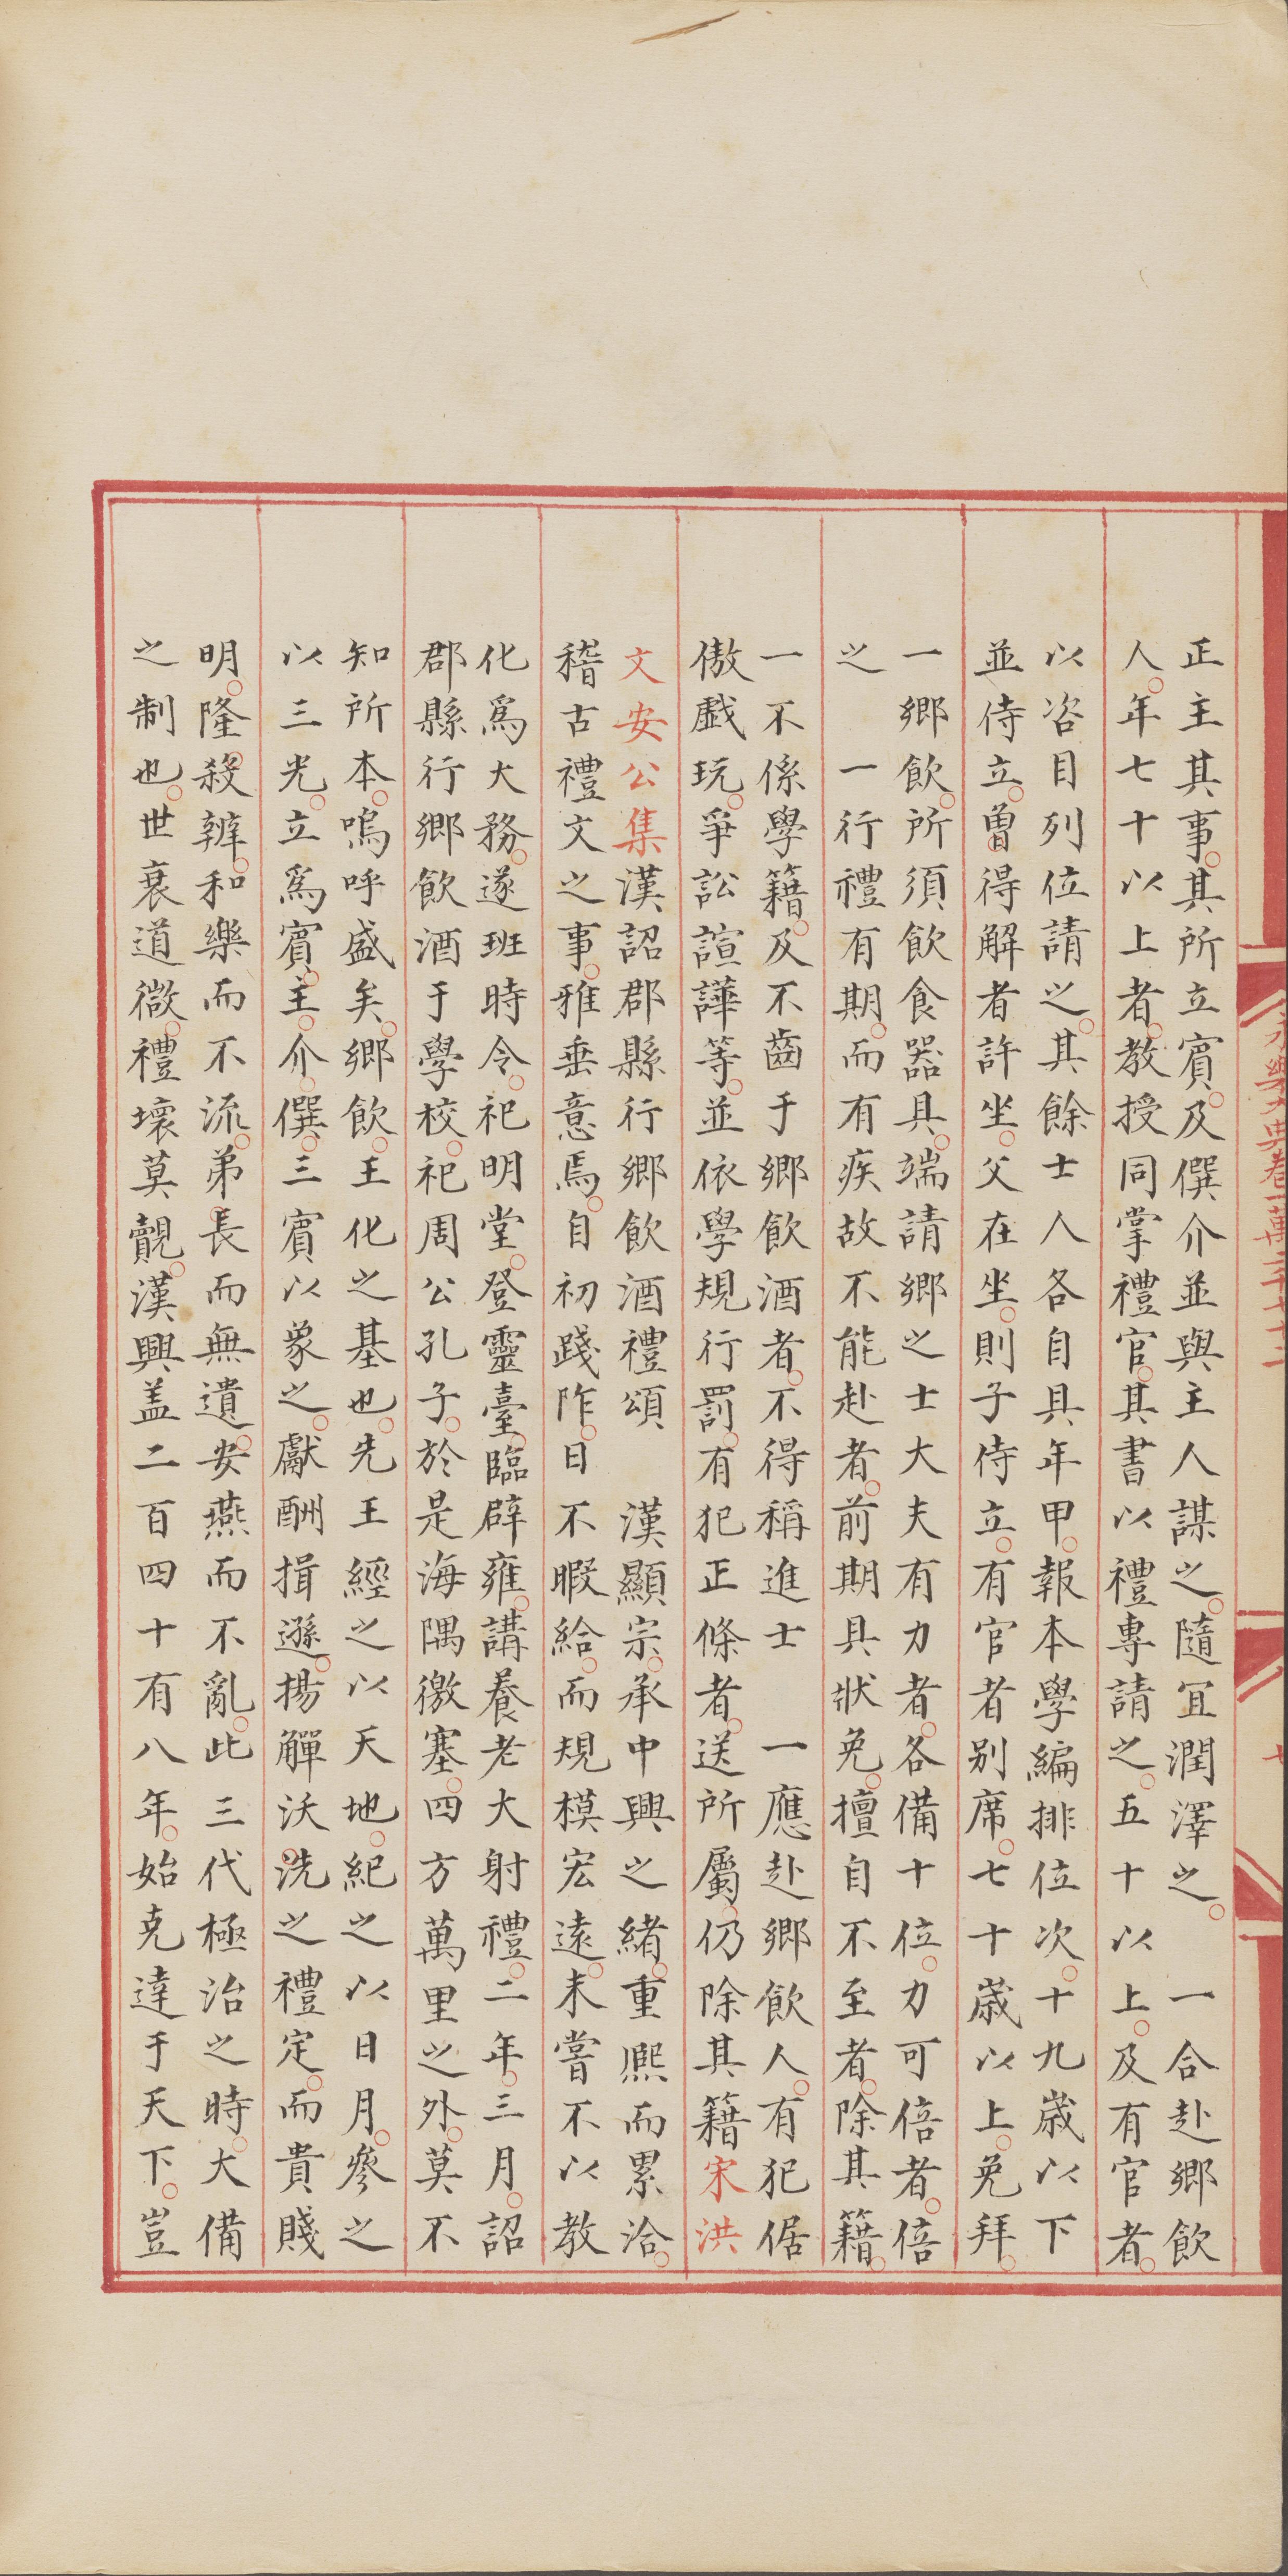 正主其事其所立賓及僎介並與主人謀之隨宜潤澤之　一合赴鄉飲
人年七十以上者教授同掌禮官其書以禮專請之五十以上及有官者
以咨目列位請之其餘士人各自具年甲報本學編排位次十九歲以下
並侍立曽得解者許坐父在坐則子侍立有官者别席七十歲以上免拜
一鄉飲所須飲食器具端請鄉之士大夫有力者各備十位力可倍者倍
之　一行禮有期而有疾故不能赴者前期具狀免擅自不至者除其籍
一不係學籍及不齒于鄉飲酒者不得稱進士　一應赴鄉飲人有犯倨
傲戲玩爭訟諠譁等並依學規行罰有犯正條者送所屬仍除其籍宋洪
文安公集漢詔郡縣行鄉飲酒禮頌　漢顯宗承中興之緒重熈而累洽
稽古禮文之事雅垂意焉自初踐阼日不暇給而規模宏逺未嘗不以教
化爲大務遂班時令祀明堂登靈臺臨辟雍講養老大射禮二年三月詔
郡縣行鄉飲酒于學校祀周公孔子於是海隅徼塞四方萬里之外莫不
知所本嗚呼盛矣鄉飲王化之基也先王經之以天地紀之以日月叅之
以三光立爲賓主介僎三賓以象之獻酬揖遜揚觶沃洗之禮定而貴賤
明隆殺辨和樂而不流弟長而無遺安燕而不亂此三代極治之時大備
之制也世衰道微禮壞莫覿漢興盖二百四十有八年始克達于天下豈
永樂大典卷一萬二千七十二
七